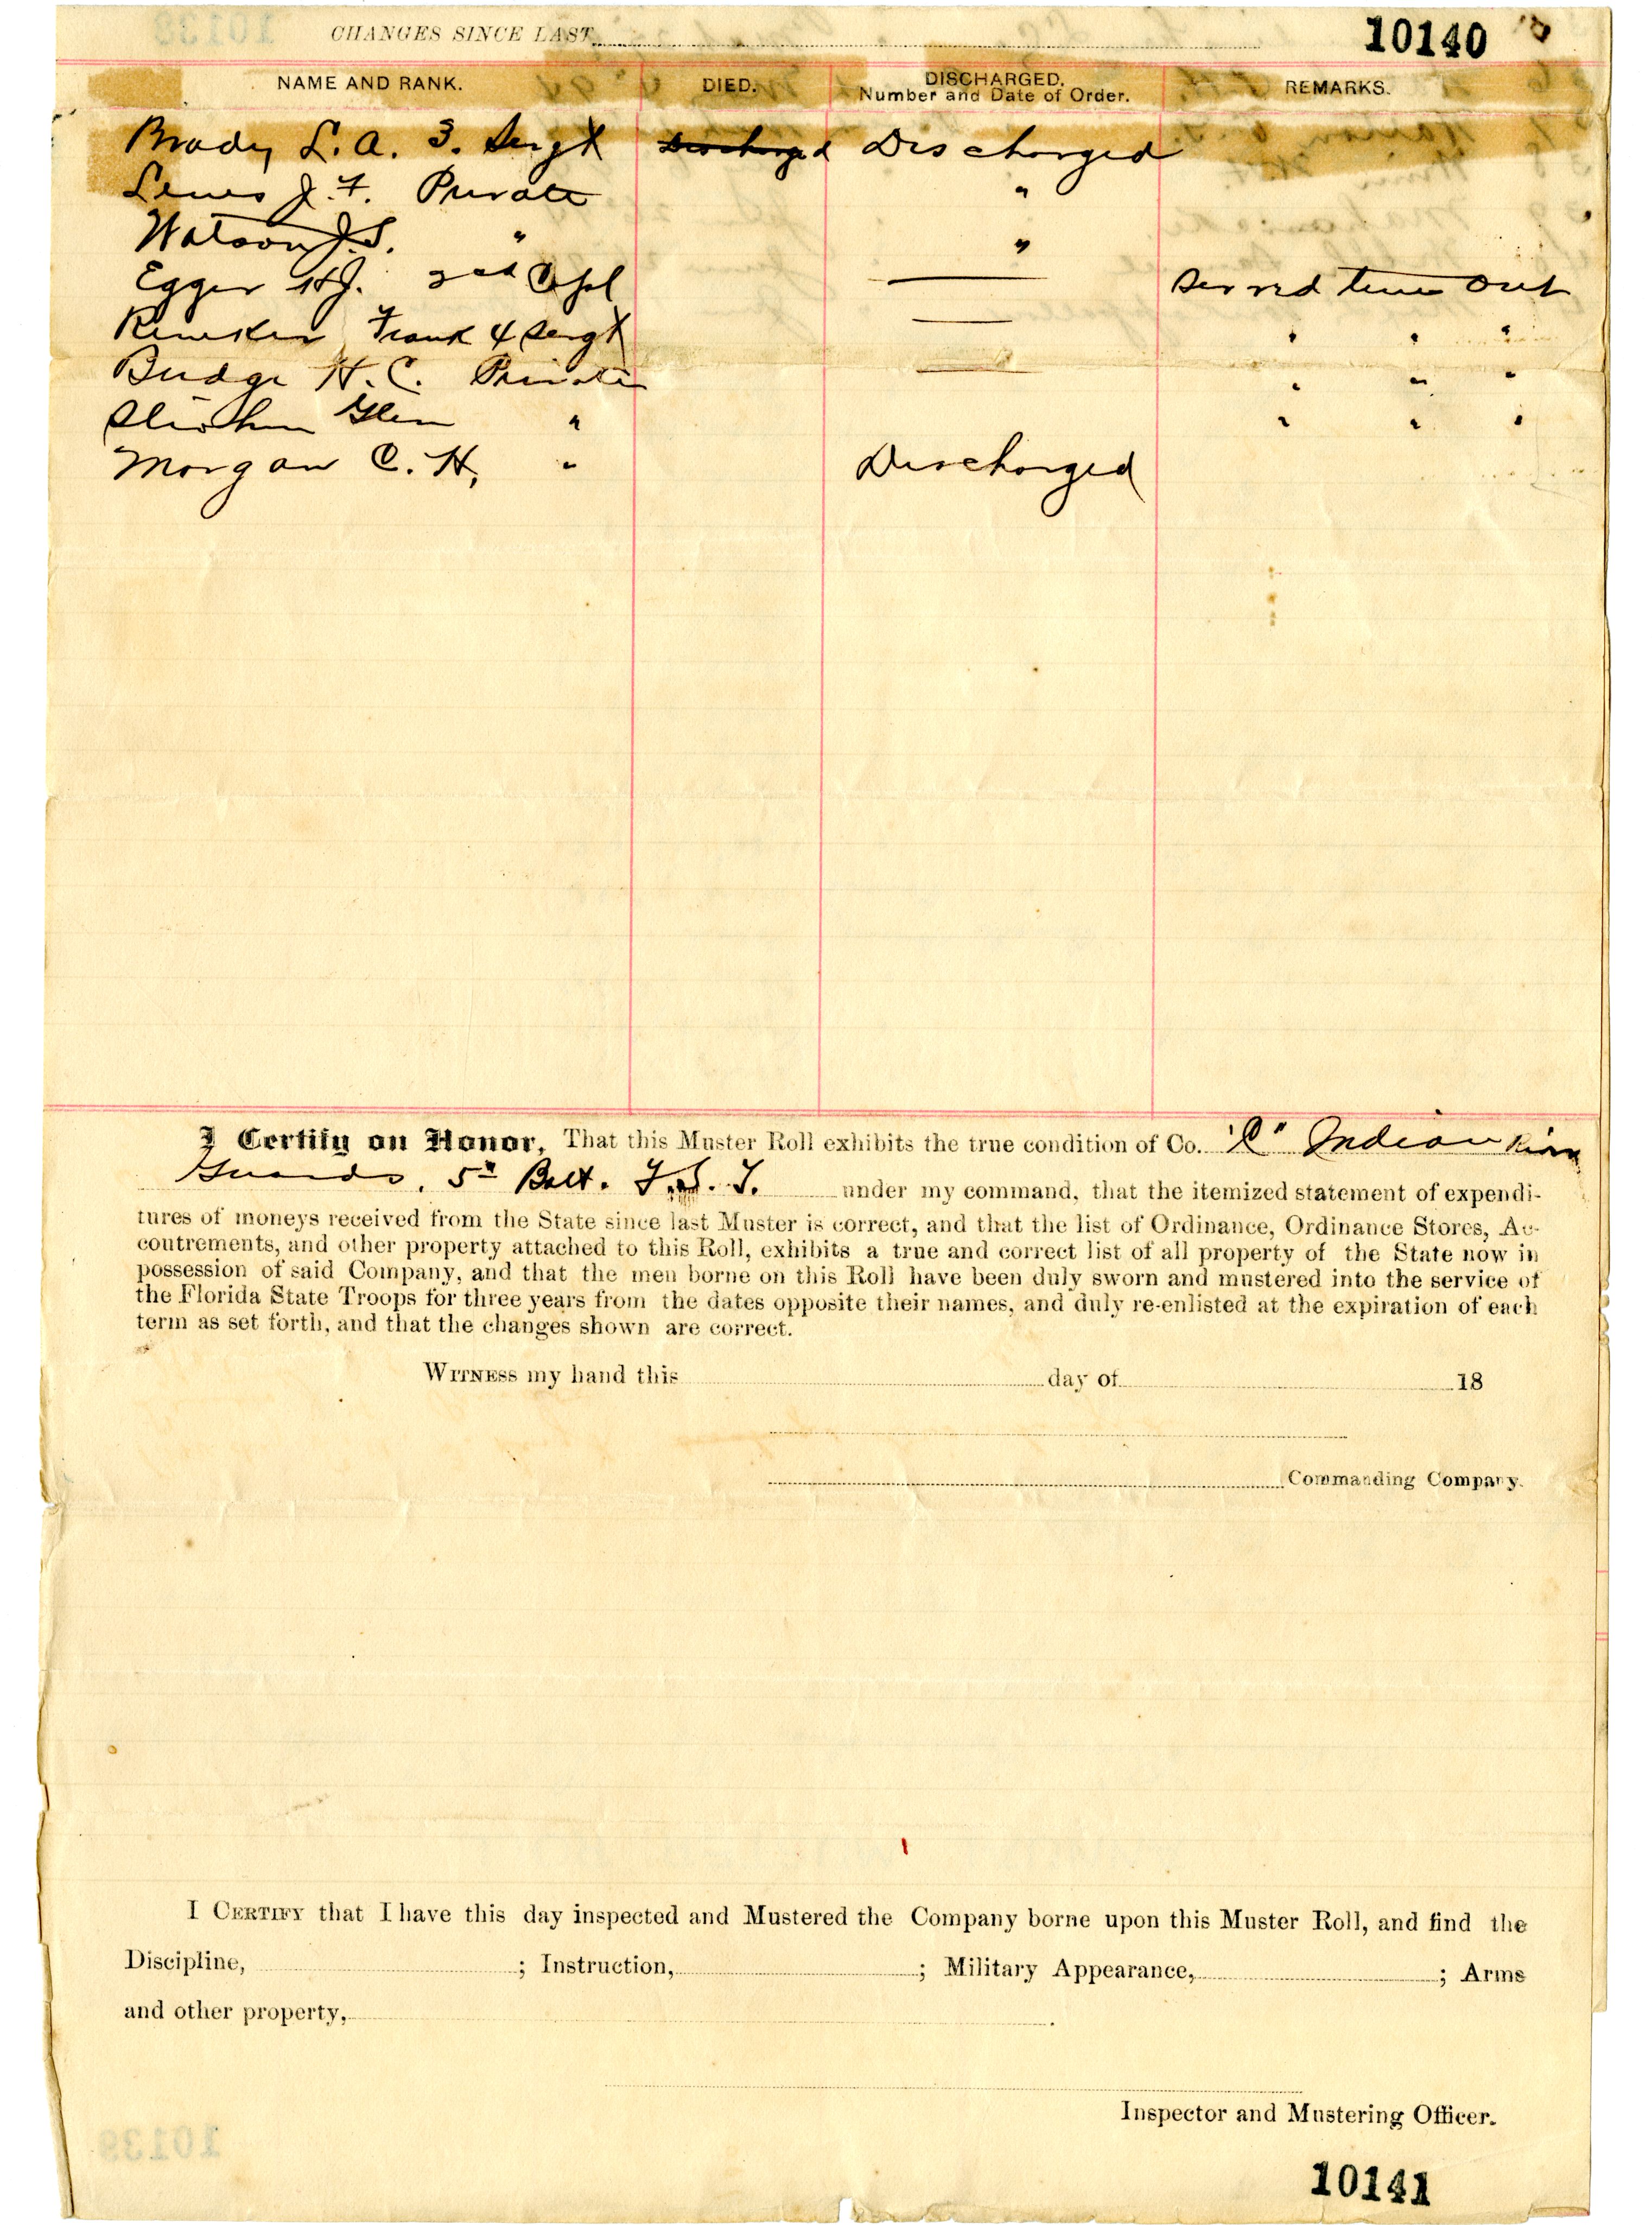 CHANGES SINCE LAST
10140
NAME AND RANK. DIED. DISCHARGED, Number and Date of Order. REMARKS.
Brady L. A. 3. Sergt Discharged Discharged
Lewis J. F. Private "
Watson J. S. " "
Egger H J. 2nd Cpl served time out
Frank 4 Sergt " " "
Budge H. C. Private " " "
Glen " " " "
Morgan C. H, " Discharged
I Certify on Honor, That this Muster Roll exhibits the true condition of Co. "C" Indian River
Guards, 5th Batt. F. S. T. under my command, that the itemized statement of expendi-
tures of moneys received from the State since last Muster is correct, and that the list of Ordinance, Ordinance Stores, Ac-
coutrements, and other property attached to this Roll, exhibits a true and correct list of all property of the State now in
possession of said Company, and that the men borne on this Roll have been duly sworn and mustered into the service of
the Florida State Troops for three years from the dates opposite their names, and duly re-enlisted at the expiration of each
term as set forth, and that the changes shown are correct.
WITNESS my hand this day of 18
Commanding Company.
I CERTIFY that I have this day inspected and Mustered the Company borne upon this Muster Roll, and find the
Discipline, ; Instruction, ; Military Appearance, ; Arms
and other property, .
Inspector and Mustering Officer.
10139
10141